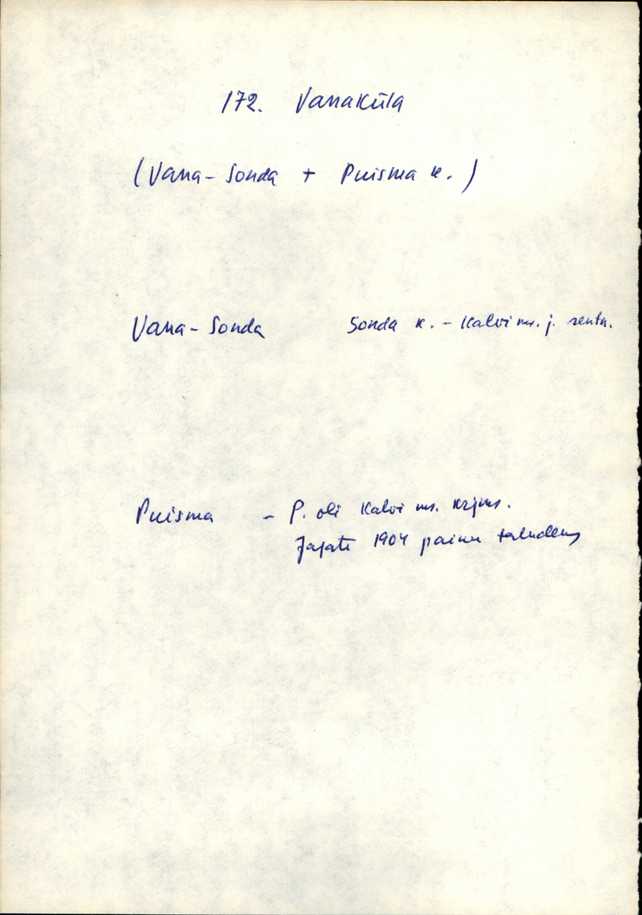 172. Vanaküla
(Vana-Sonda + Puisma k.)
Vana-Sonda Sonda k. - Kalvi ms. j.
Puisma - P. oli Kalvi ms. krjms.
Jagati 1904 taludens